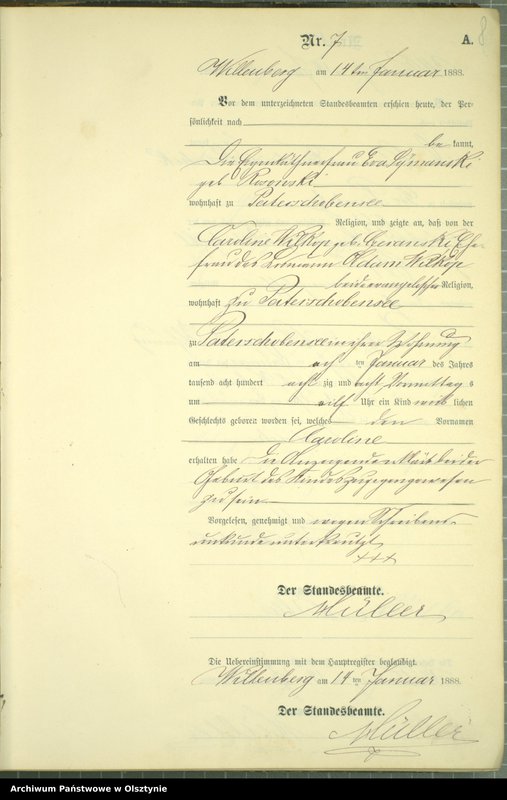 Nr. 7
A. 8
Willenberg am 14ten Januar 1888.
Vor dem unterzeichneten Standesbeamten erschien heute, der Per-
sönlichkeit nach
be kannt,
Die Eigenkäthnerfrau Eva Symanski
geb Rosowski
wohnhaft zu Paterschobensee
Religion, und zeigte an, daß von der
Caroline Wilkop geb. Ehe-
frau des Adam Wilkop
beide evangelischer Religion,
wohnhaft zu Paterschobensee
zu Paterschobensee in ihrer Wohnung
am acht ten Januar des Jahres
tausend acht hundert acht zig und acht Vormittag s
um eilf Uhr ein Kind weib lichen
Geschlechts geboren worden sei, welches den Vornamen
Pauline
erhalten habe. Die Anzeigende erklärt bei der
Geburt des Kindes zugegen gewesen
zu sein
Vorgelesen, genehmigt und wegen Schreibens-
unkunde unterkreuzt
+++
Der Standesbeamte.
Müller
Die Uebereinstimmung mit dem Hauptregister beglaubigt.
Willenberg am 14 ten Januar 1888.
Der Standesbeamte.
Müller
Archiwum Państwowe w Olsztynie